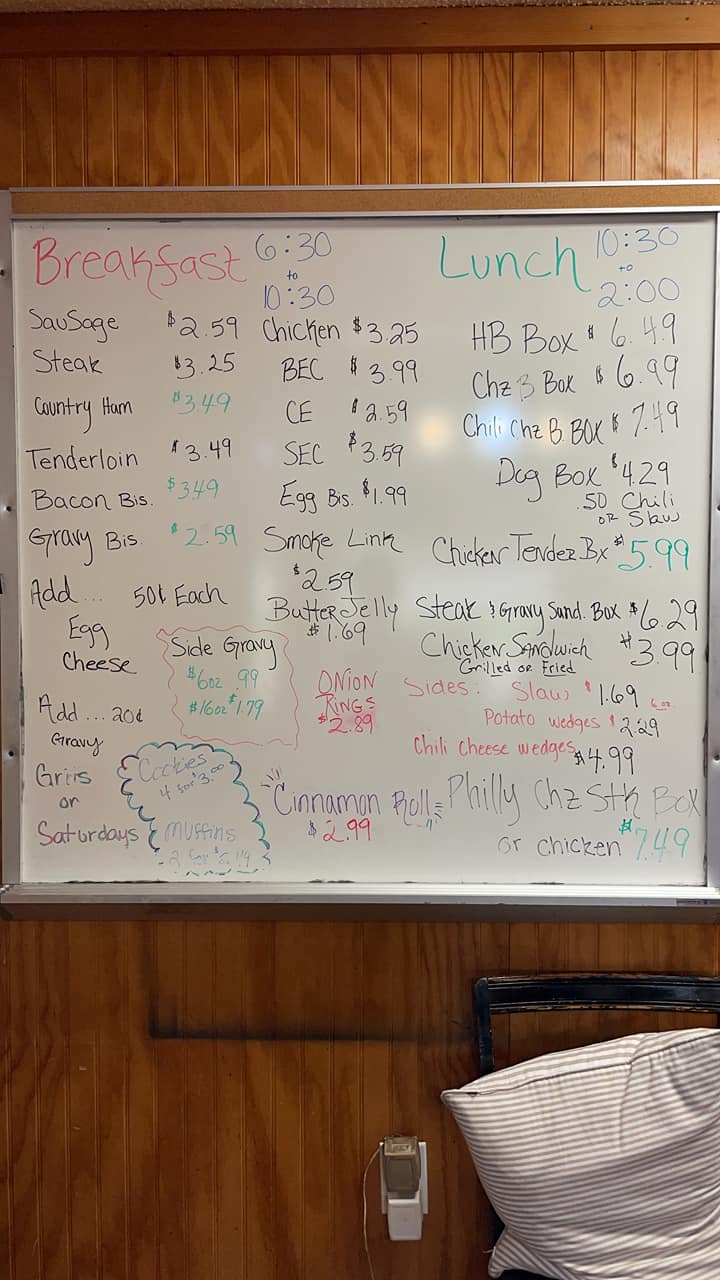 Breakfast 6:30
to
10:30
Sausage $2.59
Steak $3.25
Country Ham $3.49
Tenderloin $3.49
Bacon Bis. $3.49
Gravy Bis. $2.59
Add... 50¢ Each
Egg
Cheese
Add... 20¢
Gravy
Chicken $3.25
BEC $3.99
CE $2.59
SEC $3.59
Egg Bis. $1.99
Smoke Link
$2.59
Butter Jelly
$1.69
Side Gravy
$6oz .99
$16oz $1.79
ONION
RINGS
$2.89
on
Saturdays
Cookies
4 for $3.00
Muffins
2 for
Cinnamon Roll
$2.99
Lunch 10:30
to
2:00
HB Box $6.49
Chz B Box $6.99
Chili Chz B. Box $7.49
Dog Box $4.29
.50 Chili
or Slaw
Chicken Tender Bx $5.99
Steak & Gravy Sand. Box $6.29
Chicken Sandwich $3.99
Grilled or Fried
Sides: Slaw $1.69 6oz
Potato wedges $2.29
Chili Cheese wedges $4.99
Philly Chz Stk Box
or chicken $7.49